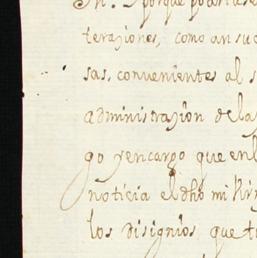 In. y porque podria se
teraziones, como an suc
sas, convenientes al s
administrazion de la
go y encargo que enl
noticia el dho mi Vir
los disignios, que t